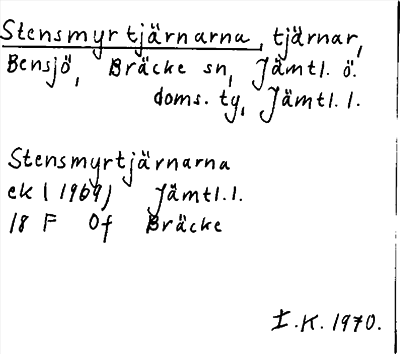 Stensmyrtjärnarna, tjärnar,
Bensjö, Bräcke sn, Jämtl. ö.
doms. tg, Jämtl. l.
Stensmyrtjärnarna
ek (1969) Jämtl. l.
18 F Of Bräcke
I.K. 1970.